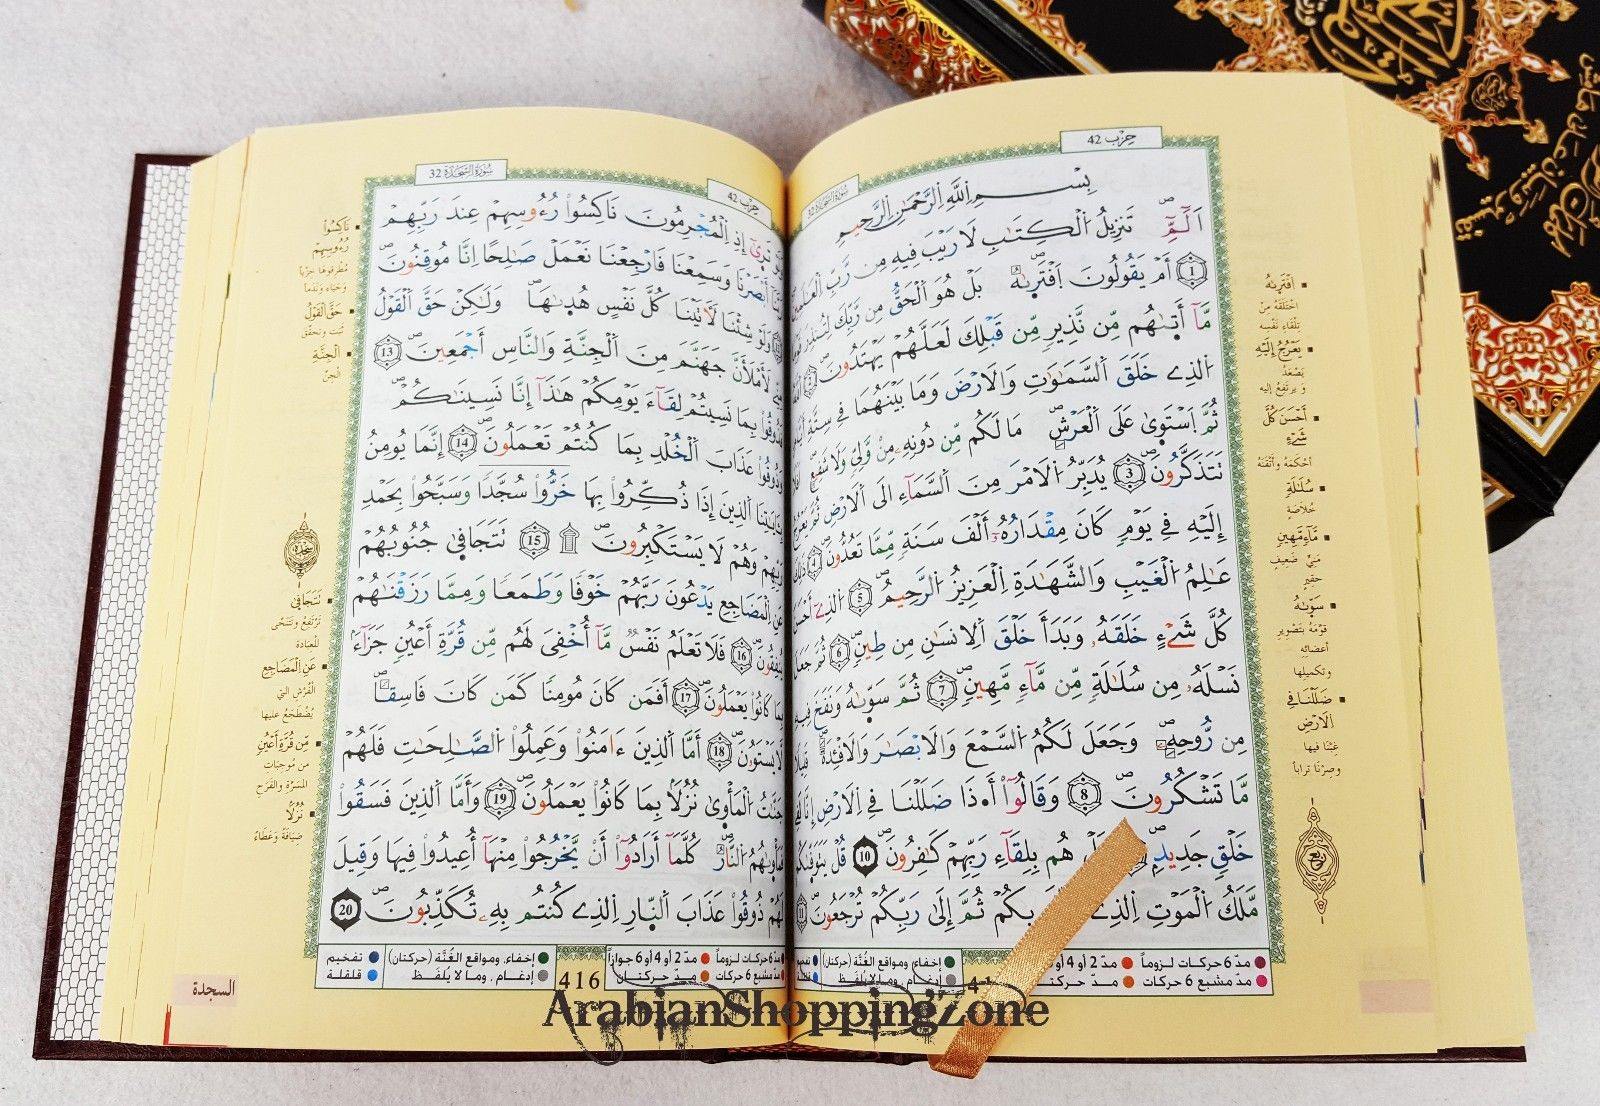 حزب 42
بِسْمِ اِللَّهِ اِلرَّحْمَٰنِ اِلرَّحِيمِ
أَلَٓمِّٓۖ تَنزِيلُ اُلْكِتَٰبِ لَا رَيْبَ فِيهِ مِن رَّبِّ اِلْعَٰلَمِينَ
1 أَمْ يَقُولُونَ اَفْتَرَىٰهُۖ بَلْ هُوَ اَلْحَقُّ مِن رَّبِّكَ لِتُنذِرَ قَوْماً
مَّآ أَتَىٰهُم مِّن نَّذِيرٖ مِّن قَبْلِكَ لَعَلَّهُمْ يَهْتَدُونَۖ 2
اَلذِے خَلَقَ اَلسَّمَٰوَٰتِ وَالَارْضَ وَمَا بَيْنَهُمَا فِے سِتَّةِ
ثُمَّ اَسْتَوَىٰ عَلَى اَلْعَرْشِۖ مَا لَكُم مِّن دُونِهِۦ مِنْ وَّلِيّٖ وَلَا شَفِيعٍ
تَتَذَكَّرُونَۖ 3 يُدَبِّرُ اُلَامْرَ مَِنَ اَلسَّمَآءِ اِلَى اَلَارْضِ ثُمَّ يَعْرُجُ
إِلَيْهِ فِے يَوْمٖ كَانَ مِقْدَارُهُۥٓ أَلْفَ سَنَةٖ مِّمَّا تَعُدُّونَۖ 4 ذَٰلِكَ
عَٰلِمُ اُلْغَيْبِ وَالشَّهَٰدَةِ اِلْعَزِيزُ اُلرَّحِيمُۖ 5 اُلذِےٓ أَحْسَنَ
كُلَّ شَےْءٍ خَلَقَهُۥ وَبَدَأَ خَلْقَ اَلِانسَٰنِ مِن طِينٖۖ 6 ثُمَّ جَعَلَ
نَسْلَهُۥ مِن سُلَٰلَةٖ مِّن مَّآءٖ مَّهِينٖۖ 7 ثُمَّ سَوَّىٰهُ وَنَفَخَ فِيهِ
مِن رُّوحِهِۦۖ وَجَعَلَ لَكُمُ اُلسَّمْعَ وَالَابْصَٰرَ وَالَافْـِٕدَةَۖ قَلِيلاً
مَّا تَشْكُرُونَۖ 8 وَقَالُوٓاْ أَ۟ذَا ضَلَلْنَا فِے اِلَارْضِ إِنَّا لَفِے
خَلْقٖ جَدِيدِۢۖ هُم بِلِقَآءِ رَبِّهِمْ كَٰفِرُونَۖ 10 قُلْ يَتَوَفَّىٰكُم
مَّلَكُ اُلْمَوْتِ اِلذِے بِكُمْ ثُمَّ إِلَىٰ رَبِّكُمْ تُرْجَعُونَۖ 11
اَفْتَرَىٰهُ
اختلقه من
تلقاء نفسه
يَعْرُجُ إِلَيْهِ
يصعد
ويرتفع إليه
أَحْسَنَ كُلَّ
شَےْءٍ
أحكمه وأتقنه
سُلَٰلَةٖ
خلاصة
مَّآءٖ مَّهِينٖ
منيّ ضعيف
حقير
سَوَّىٰهُ
قوّمه بتصوير
أعضائه
وتكميلها
ضَلَلْنَا فِے
اِلَارْضِ
غبنا فيها
وصرنا تراباً
ربع
مدّ 6 حركات لزوماً
مدّ مشبع 6 حركات
مدّ حركتان
إخفاء، ومواقع الغُنَّة (حركتان)
إدغام، وما لا يُلفظ
سُورَةُ السَّجْدَةِ 32
حزب 42
تَرَىٰٓ إِذِ اِلْمُجْرِمُونَ نَاكِسُواْ رُءُوسِهِمْ عِندَ رَبِّهِمْ
أَبْصَرْنَا وَسَمِعْنَا فَارْجِعْنَا نَعْمَلْ صَٰلِحاً اِنَّا مُوقِنُونَۖ
وَلَوْ شِئْنَا لَأٓتَيْنَا كُلَّ نَفْسٍ هُدَىٰهَاۖ وَلَٰكِنْ حَقَّ اَلْقَوْلُ
لَأَمْلَأَنَّ جَهَنَّمَ مِنَ اَلْجِنَّةِ وَالنَّاسِ أَجْمَعِينَۖ 13
فَذُوقُواْ بِمَا نَسِيتُمْ لِقَآءَ يَوْمِكُمْ هَٰذَآ إِنَّا نَسِينَٰكُمْۖ
وَذُوقُواْ عَذَابَ اَلْخُلْدِ بِمَا كُنتُمْ تَعْمَلُونَۖ 14 إِنَّمَا يُومِنُ
بِـَٔايَٰتِنَا اَلذِينَ إِذَا ذُكِّرُواْ بِهَا خَرُّواْ سُجَّداً وَسَبَّحُواْ بِحَمْدِ
رَبِّهِمْ وَهُمْ لَا يَسْتَكْبِرُونَۖ 15 تَتَجَافَىٰ جُنُوبُهُمْ
عَنِ اِلْمَضَاجِعِ يَدْعُونَ رَبَّهُمْ خَوْفاً وَطَمَعاً وَمِمَّا رَزَقْنَٰهُمْ
يُنفِقُونَۖ 16 فَلَا تَعْلَمُ نَفْسٞ مَّآ أُخْفِيَ لَهُم مِّن قُرَّةِ أَعْيُنٖ جَزَآءَۢ
بِمَا كَانُواْ يَعْمَلُونَۖ 17 أَفَمَن كَانَ مُومِناً كَمَن كَانَ فَاسِقاًۖ
لَّا يَسْتَوُۥنَۖ 18 أَمَّا اَلذِينَ ءَامَنُواْ وَعَمِلُواْ اُلصَّٰلِحَٰتِ فَلَهُمْ
جَنَّٰتُ اُلْمَأْوَىٰ نُزُلاَۢ بِمَا كَانُواْ يَعْمَلُونَۖ 19 وَأَمَّا اَلذِينَ فَسَقُواْ
فَمَأْوَىٰهُمُ اُلنَّارُۖ كُلَّمَآ أَرَادُوٓاْ أَنْ يَّخْرُجُواْ مِنْهَآ أُعِيدُواْ فِيهَا وَقِيلَ
لَهُمْ ذُوقُواْ عَذَابَ اَلنَّارِ اِلذِے كُنتُم بِهِۦ تُكَذِّبُونَۖ 20
نَاكِسُواْ
رُءُوسِهِمْ
مطرقوها خزياً
وحياء وندماً
حَقَّ اَلْقَوْلُ
ثبت وتحقّق
اَلْجِنَّةِ
الجنّ
سجدة
تَتَجَافَىٰ
ترتفع وتتنحّى
للعبادة
عَنِ اِلْمَضَاجِعِ
الفُرُش التي
يُضطجع عليها
مِّن قُرَّةِ أَعْيُنٖ
من موجبات
المسرّة والفرح
نُزُلاً
ضيافة وعطاء
مدّ 2 أو 4 أو 6 جوازاً
إخفاء، ومواقع الغُنَّة (حركتان)
تفخيم
مدّ مشبع 6 حركات
مدّ حركتان
416
إدغام، وما لا يُلفظ
قلقلة
السجدة
ArabianShoppingZone